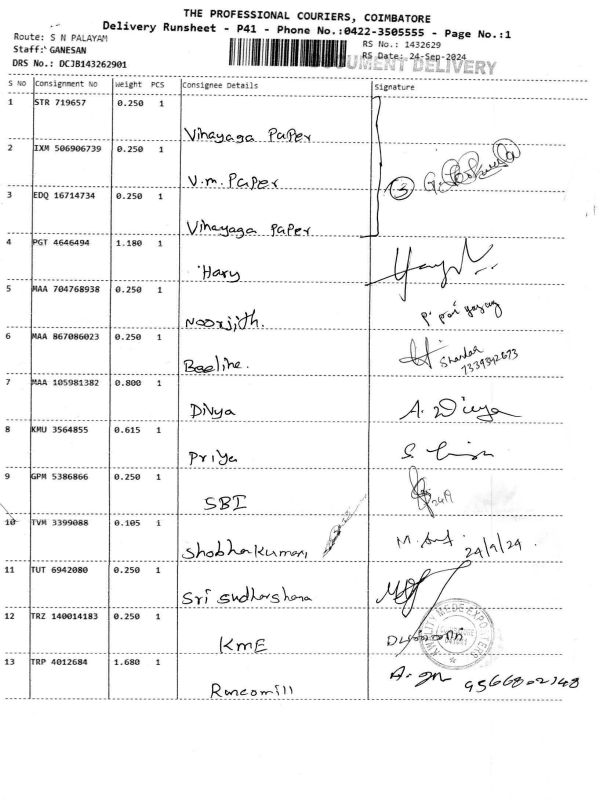 THE PROFESSIONAL COURIERS, COIMBATORE
Delivery Runsheet - P41 - Phone No.:0422-3505555 - Page No.:1
Route: S N PALAYAM
RS No.: 1432629
Staff: GANESAN
RS Date: 24-Sep-2024
DRS No.: DCJB143262901
DOCUMENT DELIVERY
S NO Consignment No Weight PCS Consignee Details Signature
1 STR 719657 0.250 1
Vinayaga Paper
2 IXM 506906739 0.250 1
V.m. Paper
3
3 EDQ 16714734 0.250 1
Vinayaga Paper
4 PGT 4646494 1.180 1
Hary
5 MAA 704768938 0.250 1
Noorjith.
6 MAA 867086023 0.250 1
Beeline.
Shankar
7 MAA 105981382 0.800 1
Divya A. Divya
8 KMU 3564855 0.615 1
Priya
9 GPM 5386866 0.250 1
SBI
10 TVM 3399088 0.105 1
Shobhakumari 24/9/24.
11 TUT 6942080 0.250 1
Sri Sudharshana
12 TRZ 140014183 0.250 1
KME
13 TRP 4012684 1.680 1
Rancomill